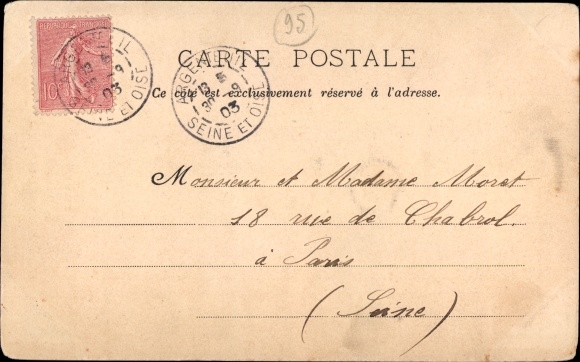 95
CARTE POSTALE
Ce côté est exclusivement réservé à l'adresse.
RÉPUBLIQUE FRANÇAISE
10
ARGENTEUIL
30 -9
03
SEINE ET OISE
Monsieur et Madame Moret
18 rue de Chabrol.
à Paris
(Seine)